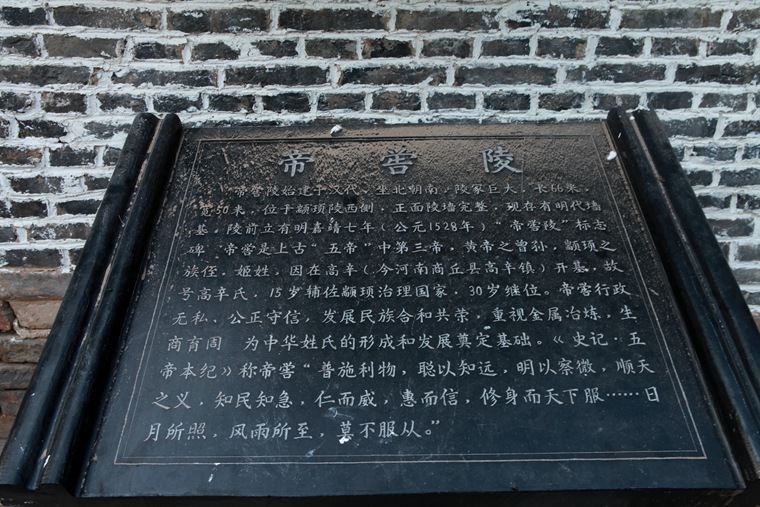 帝喾陵
帝喾陵始建于汉代，坐北朝南，陵冢巨大，长66米，
宽50米，位于颛顼陵西侧，正面陵墙完整，现存有明代墙
基，陵前立有明嘉靖七年（公元1528年）“帝喾陵”标志
碑。帝喾是上古“五帝”中第三帝，黄帝之曾孙，颛顼之
族侄，姬姓，因在高辛（今河南商丘县高辛镇）开基，故
号高辛氏，15岁辅佐颛顼治理国家，30岁继位。帝喾行政
无私、公正守信，发展民族合和共荣，重视金属冶炼，生
商育周 为中华姓氏的形成和发展奠定基础。《史记·五
帝本纪》称帝喾“普施利物，聪以知远，明以察微，顺天
之义，知民知急，仁而威，惠而信，修身而天下服……日
月所照，风雨所至，莫不服从。”